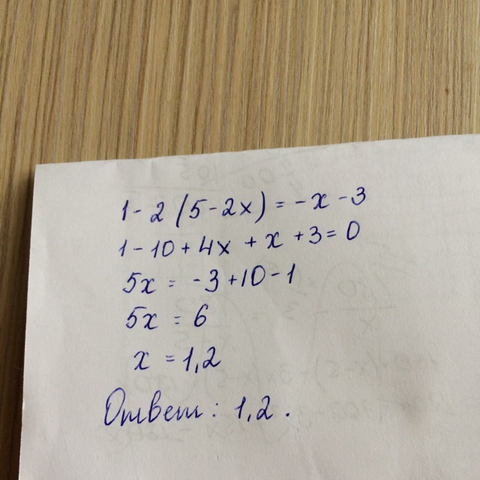 1-2(5-2x)=-x-3
1-10+4x+x+3=0
5x=-3+10-1
5x=6
x=1,2
Ответ: 1,2.